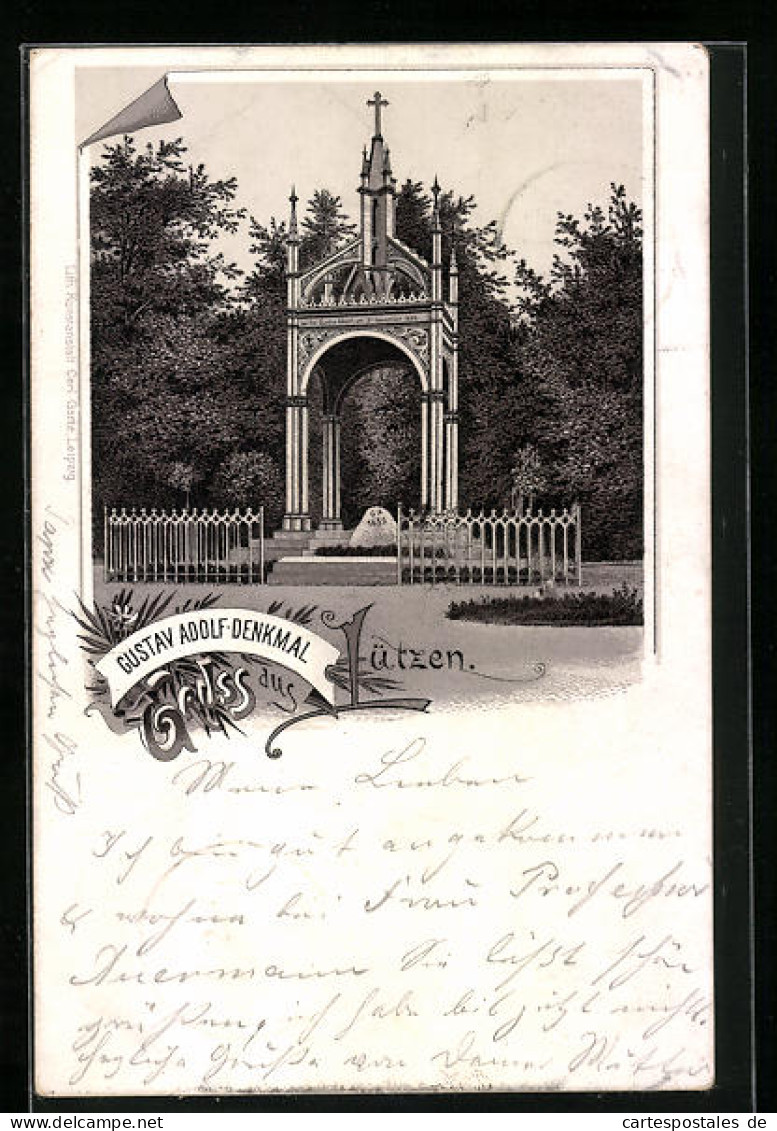 GUSTAV ADOLF-DENKMAL
Gruss aus Lützen.
Lith. Kunstanstalt Carl Garte Leipzig
Meine Lieben
Ich bin gut angekommen
& wohne bei Frau Professor
Auermann Sie läßt schön
grüßen, ich habe bis jetzt nichts.
herzliche Grüße von Deiner Mutter
herzlichen Gruß
cartespostales de